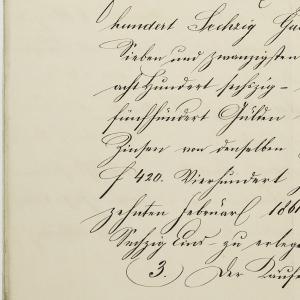 hundert Sechzig
Sieben und zwanzigsten
acht Hundert sechszig -
fünfhundert Gulden
Zinsen von denselben
f 420. Vierhundert
zehnten Februar 186
Sechzig Eins - zu erlege
3. Der Kaufs